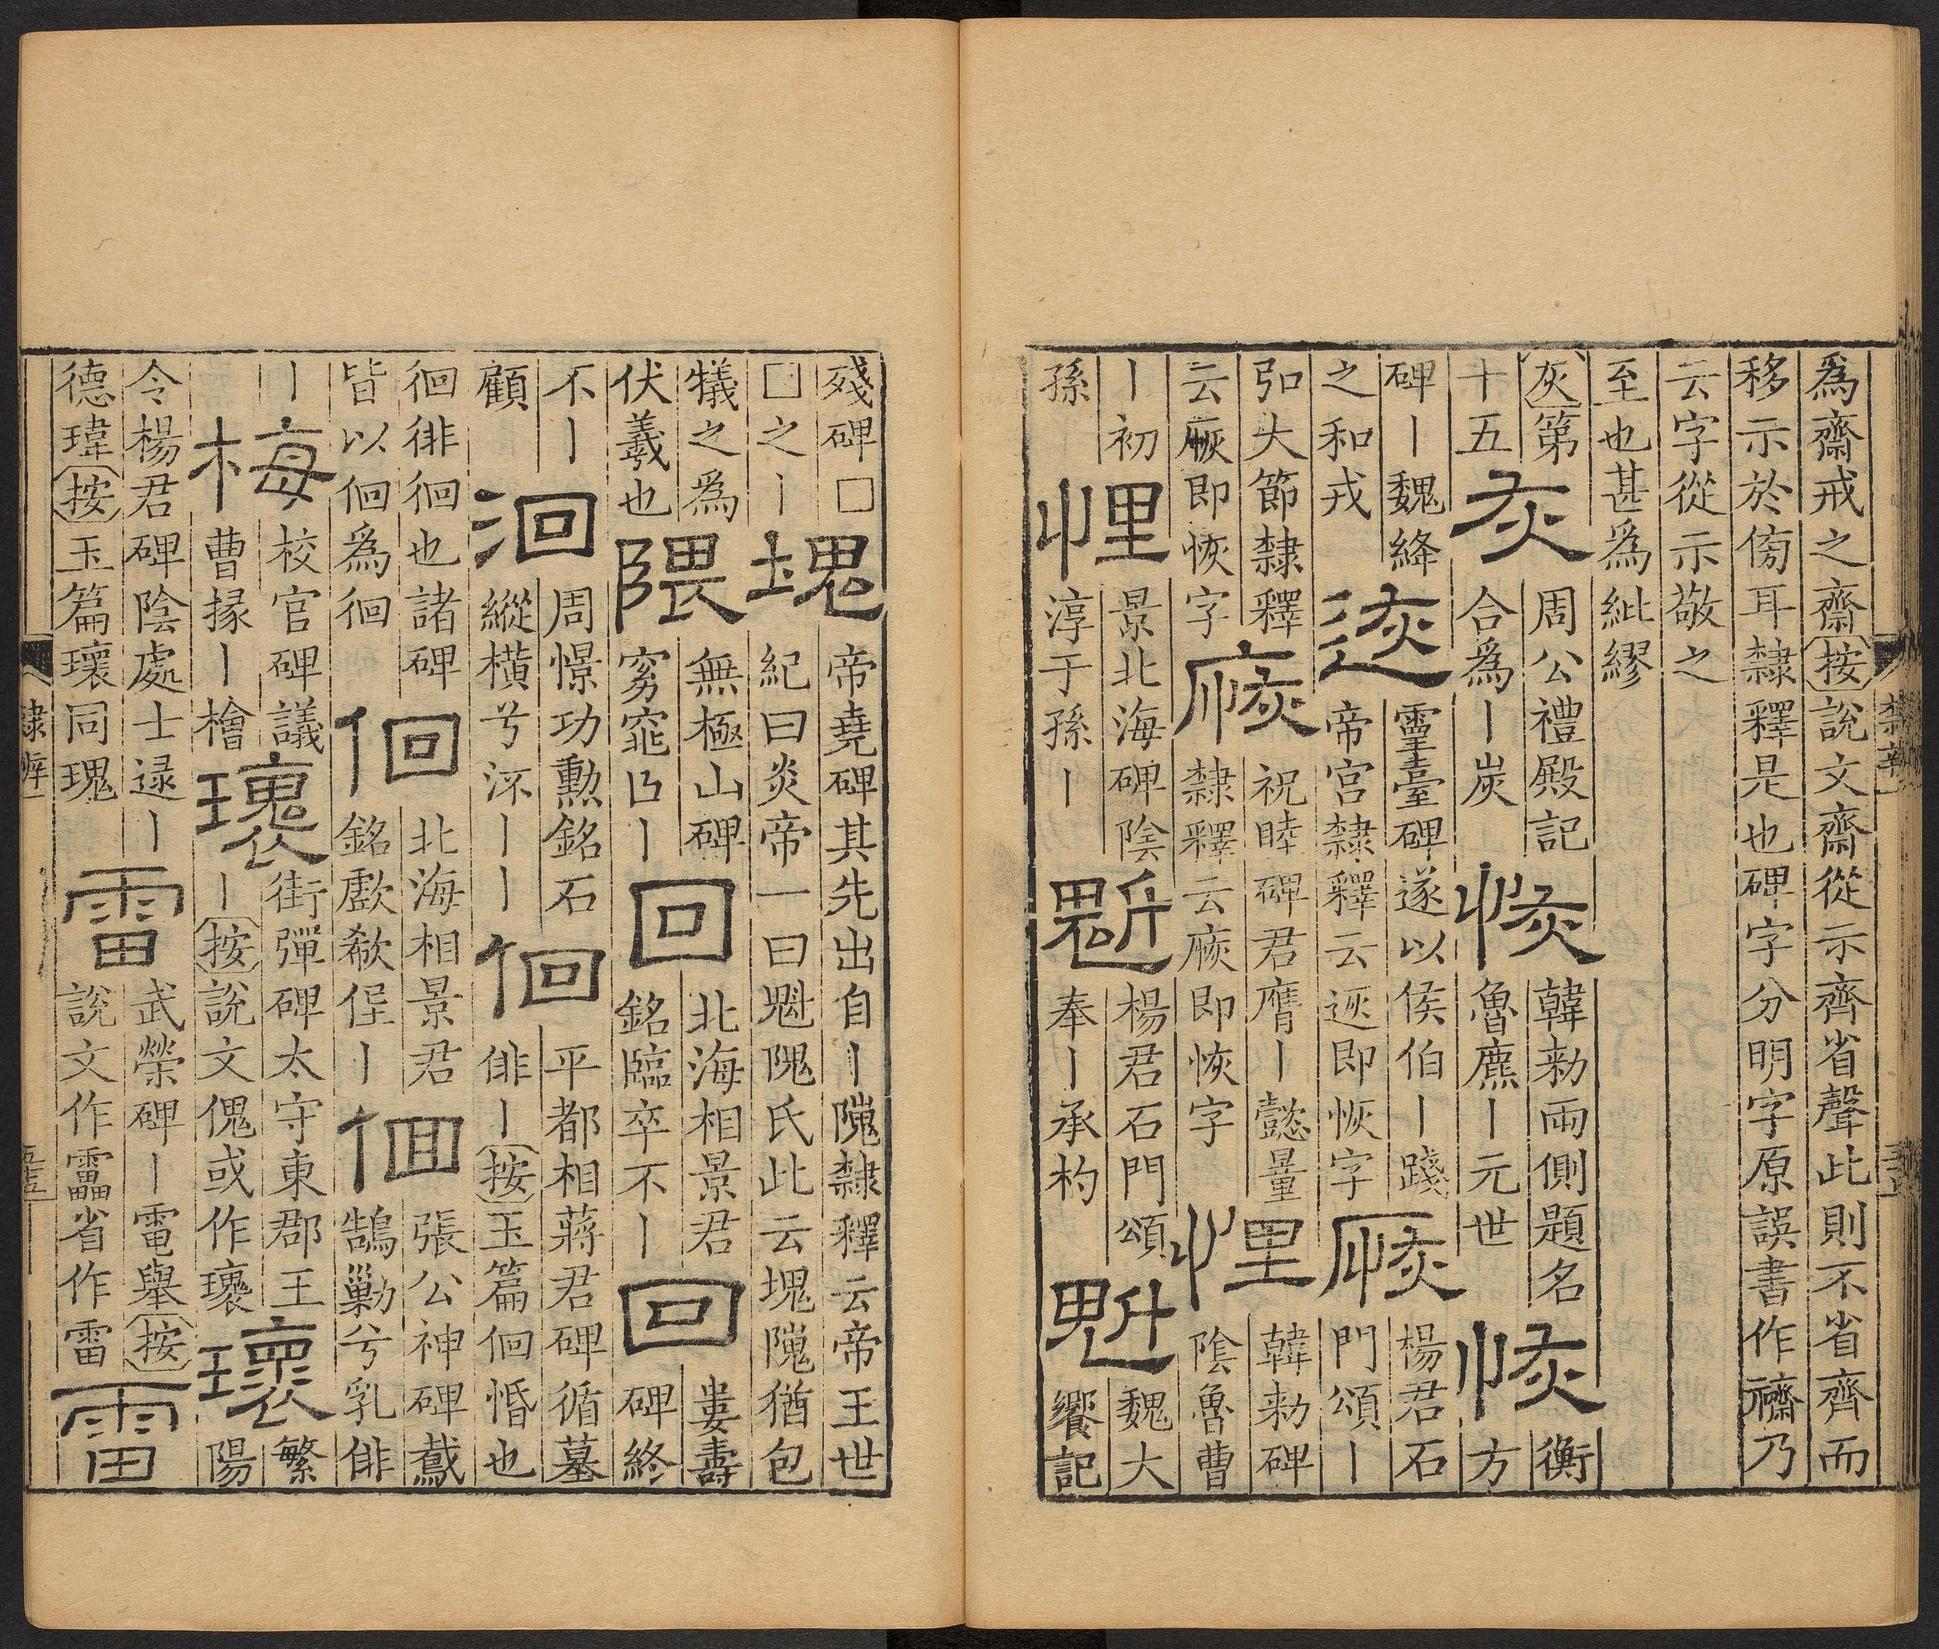 為齋戒之齋按說文齋從示齊省聲此則不省齊而
移示於傍耳隸釋是也碑字分明字原誤書作乃
云字從示敬之
至也甚為紕繆
灰第
十五
灰
周公禮殿記
合為丨炭
恢
韓勑兩側題名
魯麃丨元世
恢
衡
方
碑丨魏絳
之和戎
靈臺碑遂以侯伯丨踐
帝宮隸釋云即恢字
楊君石
門頌丨
弘大節隸釋
云即恢字
祝睦碑君膺丨懿量
隸釋云即恢字
悝
韓勑碑
陰魯曹
丨初
孫
悝
景北海碑陰
淳于孫丨
魁
楊君石門頌
奉丨承杓
魁
魏大
饗記
殘碑□
□之丨
塊
帝堯碑其先出自丨隗隸釋云帝王世
紀曰炎帝一曰魁隗氏此云塊隗猶包
犧之為
伏羲也
隈
無極山碑
窈窕㠯丨
回
北海相景君
銘臨卒不丨
回
婁壽
碑終
不丨
顧
洄
周憬功勳銘石
縱橫兮沠丨丨
佪
平都相蔣君碑循墓
俳丨按玉篇佪惛也
徊徘徊也諸碑
皆以佪為徊
佪
北海相景君
銘歔欷俇丨
佪
張公神碑鷰
鵠巢兮乳俳
丨
梅
校官碑議
曹掾丨檜
瓌
街彈碑太守東郡王
丨按說文傀或作瓌
瓌
繁
陽
令楊君碑陰處士逯丨
德瑋按玉篇瓌同瑰
雷
武榮碑丨電舉按
說文作靁省作雷
雷
隸辨